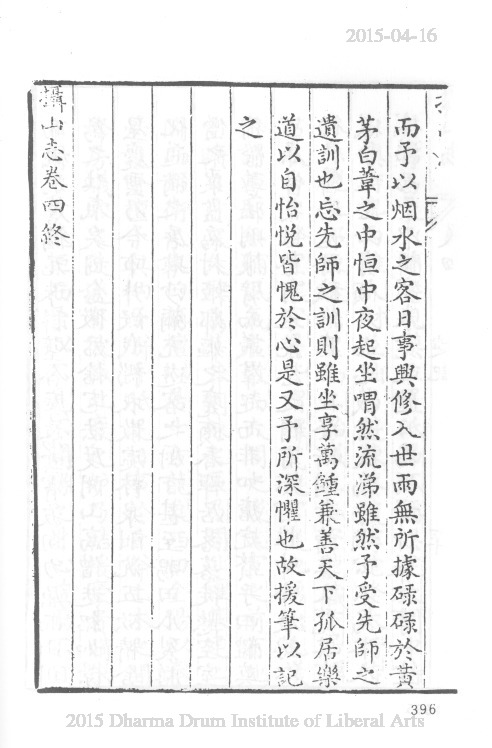 2015-04-16
而予以烟水之客日事興修入世兩無所據碌碌於黃
茅白葦之中恒中夜起坐喟然流涕雖然予受先師之
遺訓也忘先師之訓則雖坐享萬鍾兼善天下孤居樂
道以自怡悅皆愧於心是又予所深懼也故援筆以記
之
攝山志卷四終
396
2015 Dharma Drum Institute of Liberal Arts